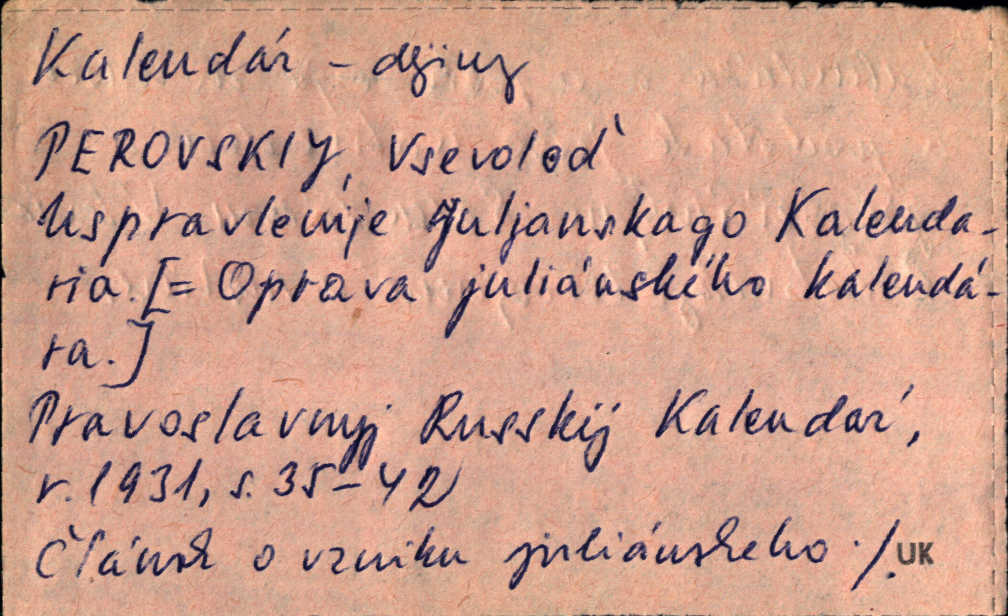 Kalendář – dějiny
PEROVSKIY, Vsevolod'
Uspravlenije Juljanskago Kalenda-
ria. [= Oprava juliánského kalendá-
ra.]
Pravoslavnyj Russkij Kalendar',
r. 1931, s. 35–42
Článek o vzniku juliánského ./.
UK